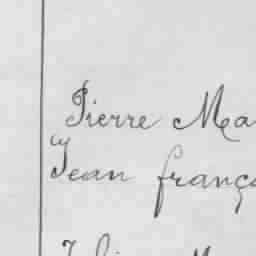 Pierre Ma
Jean franç